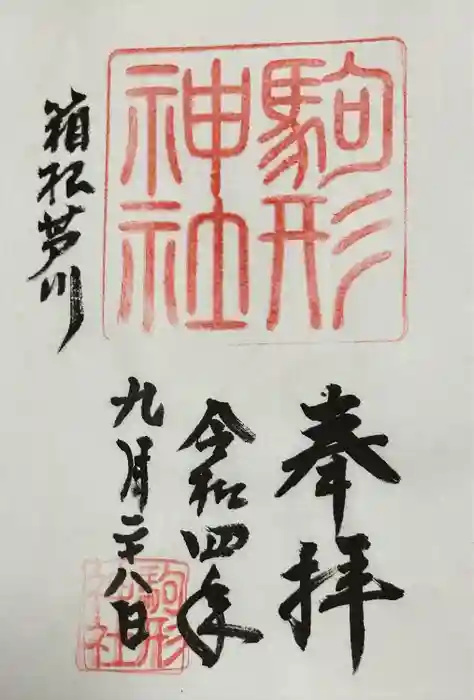 駒形
神社
奉拝
令和四年
九月二十八日
箱根芦川
駒形
神社